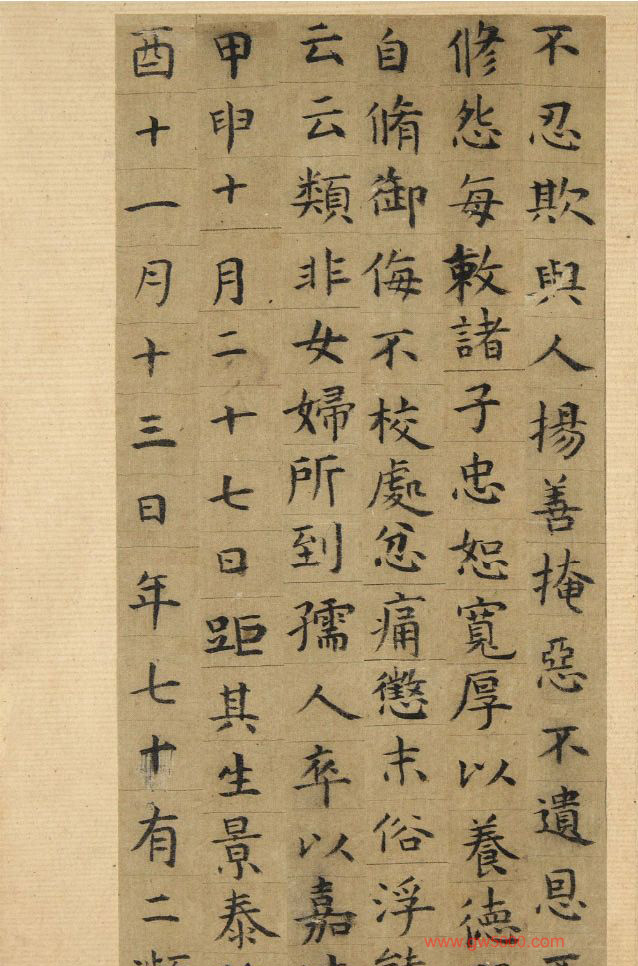 不忍欺與人揚善掩惡不遺恩
修怨每敕諸子忠恕寬厚以養德
自脩御侮不校處忿痛懲末俗浮
云云類非女婦所到孺人卒以嘉
甲申十月二十七日距其生景泰
酉十一月十三日年七十有二
www.qw5000.com